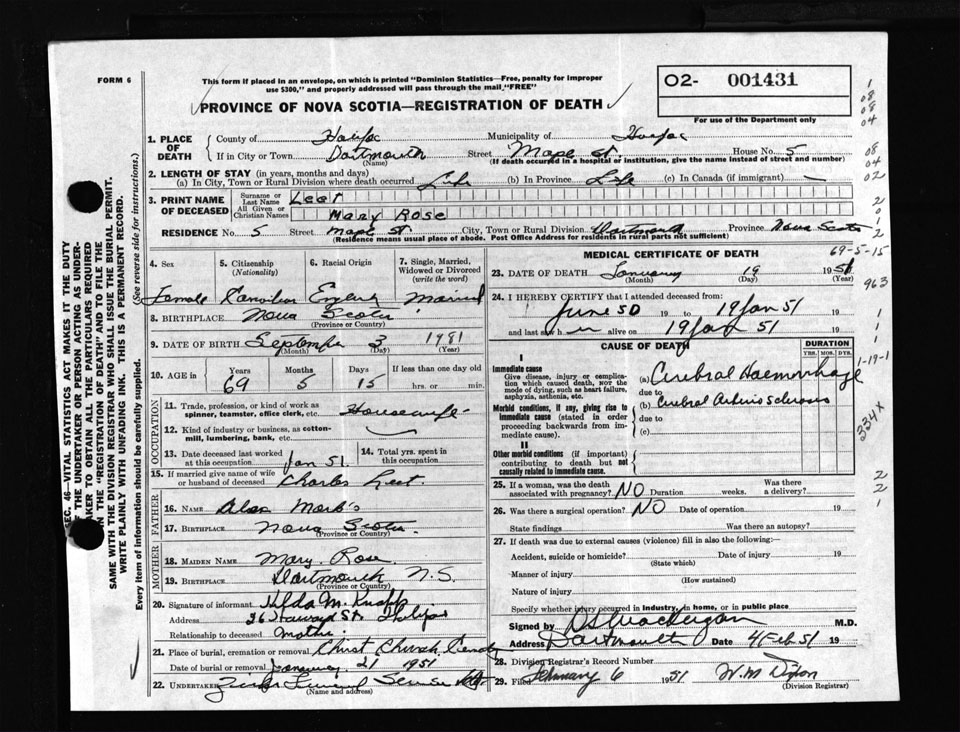 FORM 6
This form if placed in an envelope, on which is printed "Dominion Statistics—Free, penalty for improper
use $300," and properly addressed will pass through the mail "FREE"
PROVINCE OF NOVA SCOTIA—REGISTRATION OF DEATH
02- 001431
For use of the Department only
1. PLACE OF DEATH
County of Halifax Municipality of Halifax
If in City or Town Dartmouth Street Maple St. House No. 5
(Name) (If death occurred in a hospital or institution, give the name instead of street and number)
2. LENGTH OF STAY (in years, months and days)
(a) In City, Town or Rural Division where death occurred Life (b) In Province Life (c) In Canada (if immigrant) —
3. PRINT NAME OF DECEASED
Surname or Last Name Leet
All Given or Christian Names Mary Rose
RESIDENCE No. 5 Street Maple St. City, Town or Rural Division Dartmouth Province Nova Scotia
(Residence means usual place of abode. Post Office Address for residents in rural parts not sufficient)
4. Sex 5. Citizenship (Nationality) 6. Racial Origin 7. Single, Married, Widowed or Divorced (write the word)
Female Canadian English Married
8. BIRTHPLACE Nova Scotia
(Province or Country)
9. DATE OF BIRTH September 3 1981
(Month) (Day) (Year)
10. AGE in Years Months Days If less than one day old
69 5 15 hrs. or min.
OCCUPATION
11. Trade, profession, or kind of work as spinner, teamster, office clerk, etc. Housewife
12. Kind of industry or business, as cotton-mill, lumbering, bank, etc.
13. Date deceased last worked at this occupation Jan 51. 14. Total yrs. spent in this occupation
15. If married give name of wife or husband of deceased Charles Leet.
FATHER
16. NAME
17. BIRTHPLACE Nova Scotia
(Province or Country)
MOTHER
18. MAIDEN NAME Mary Rose
19. BIRTHPLACE Dartmouth N.S.
(Province or Country)
20. Signature of informant Hilda M. Knapp
Address 26 St. Halifax
Relationship to deceased Mother
21. Place of burial, cremation or removal Christ Church
Date of burial or removal January 21 1951
22. UNDERTAKER Service
(Name and address)
MEDICAL CERTIFICATE OF DEATH
69-5-15
23. DATE OF DEATH January 19 1951
(Month) (Day) (Year)
24. I HEREBY CERTIFY that I attended deceased from:
June 50 19 to 19 Jan 51 19
and last saw h er alive on 19 Jan 51 19
CAUSE OF DEATH DURATION
YRS. MOS. DYS.
I
Immediate cause
Give disease, injury or complication which caused death, NOT the mode of dying, such as heart failure, asphyxia, asthenia, etc.
(a) Cerebral Haemorrhage
due to
Morbid conditions, if any, giving rise to immediate cause (stated in order proceeding backwards from immediate cause).
(b) Cerebral Arteriosclerosis
due to
(c)
II
Other morbid conditions (if important) contributing to death but not causally related to immediate cause.
25. If a woman, was the death associated with pregnancy? NO Duration weeks. Was there a delivery?
26. Was there a surgical operation? NO Date of operation 19
State findings Was there an autopsy?
27. If death was due to external causes (violence) fill in also the following:
Accident, suicide or homicide? Date of injury 19
(State which)
Manner of injury
(How sustained)
Nature of injury
Specify whether injury occurred in industry, in home, or in public place
Signed by M.D.
Address Dartmouth Date 4 Feb 51 19
28. Division Registrar's Record Number
29. Filed February 6 1951 W. M. Dixon
(Division Registrar)
SEC. 46—VITAL STATISTICS ACT MAKES IT THE DUTY
THE UNDERTAKER OR PERSON ACTING AS UNDER-
TAKER TO OBTAIN ALL THE PARTICULARS REQUIRED
IN THE "REGISTRATION OF DEATH" AND TO FILE THE
SAME WITH THE DIVISION REGISTRAR WHO SHALL ISSUE THE BURIAL PERMIT.
WRITE PLAINLY WITH UNFADING INK. THIS IS A PERMANENT RECORD.
Every item of information should be carefully supplied. (See reverse side for instructions.)
1
08
08
04
08
04
02
2
0
1
2
963
1
1
1
1-19-1
334X
2
2
1